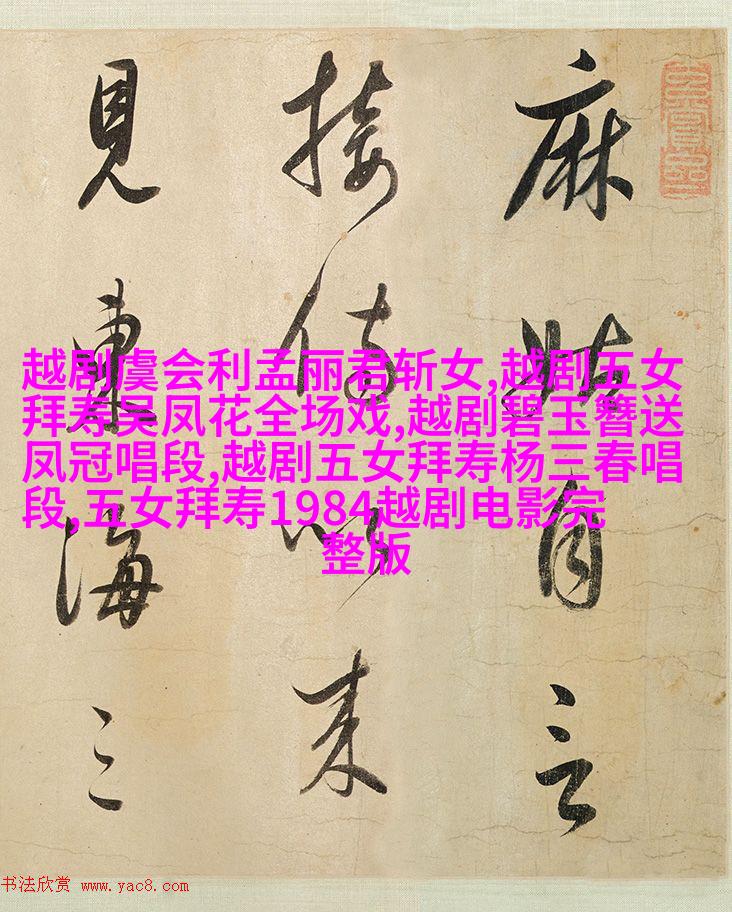 麻姑自言
接侍以来
見東海三
越剧虞会利孟丽君斩女,越剧五女
拜寿吴凤花全场戏,越剧碧玉簪送
凤冠唱段,越剧五女拜寿杨三春唱
段,五女拜寿1984越剧电影完
整版
书法欣赏 www.yac8.com